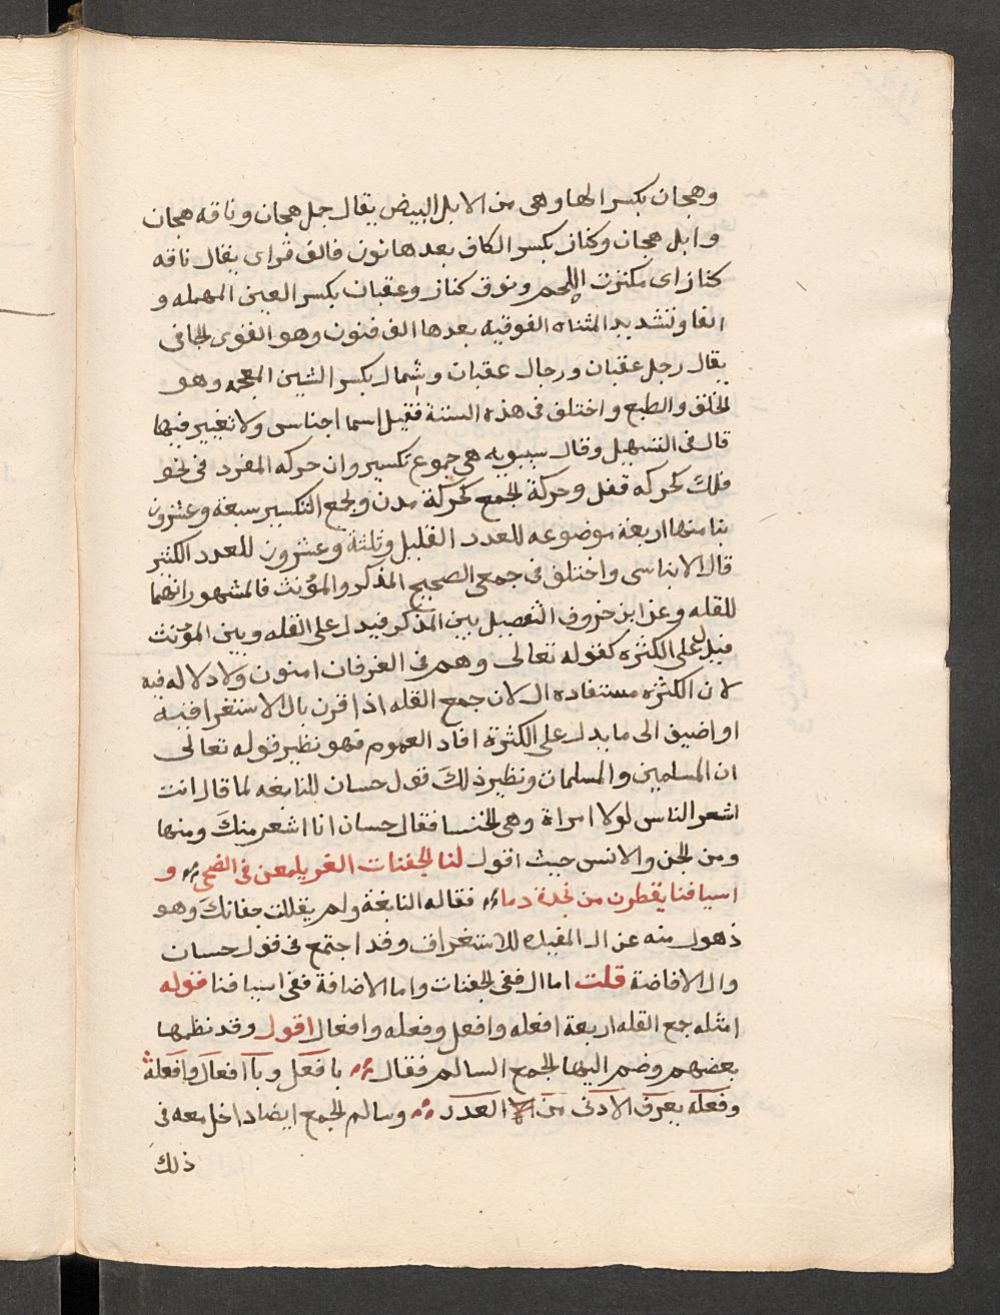 وهجان بكسر الها وهى من الابل البيض يقال جمل هجان وناقه هجان
وابل هجان وكناز بكسر الكاف بعدها نون فالف فزاى يقال ناقه
كناز اى مكتنزت اللحم ونوق كناز وعفتان بكسر العين المهمله و
الفا وتشديد المثناه الفوقيه بعدها الف فنون وهو القوى الجافى
يقال رجل عفتان ورجال عفتان وشمال بكسر الشين المعجمه وهو
للخلق والطبع واختلف فى هذه الستة فقيل اسما اجناس ولا تغيير فيها
قال فى التسهيل وقال سيبويه هى جموع تكسير وان حركه المفرد فى نحو
فلك كحركه قفل وحركة الجمع كحركة بدن ولجمع التكسير سبعة وعشرون
بنا منها اربعة موضوعه للعدد القليل وثلثة وعشرون للعدد الكثير
قال الابناسى واختلف فى جمعى الصحيح المذكر والمؤنث فالمشهور انهما
للقله وعن ابن خروف التفصيل بين المذكر فيدل على القله وبين المؤنث
فيدل على الكثره كقوله تعالى وهم فى الغرفات امنون ولا دلاله فيه
لان الكثره مستفاده ال لان جمع القله اذا قرن بال الاستغراقيه
او اضيف الى ما يدل على الكثرة افاد العموم فهو نظير قوله تعالى
ان المسلمين والمسلمات ونظير ذلك قول حسان للنابغه لما قال انت
اشعر الناس لولا امراة وهى الخنسا فقال حسان انا اشعر منك ومنها
ومن الجن والانس حيث اقول لنا الجفنات الغر يلمعن فى الضحى و
اسيافنا يقطرن من نجدة دما فقاله النابغة ولم يقللت جفانك وهو
ذهول منه عن ال المفيده للاستغراق وقد اجتمع فى قول حسان
وال الافاضة قلت اما ال ففى الجفنات واما الاضافة ففى اسيافنا قوله
امثله جمع القله اربعة افعله وافعل وفعله وافعال اقول وقد نظمها
بعضهم وضم اليها الجمع السالم فقال بافعل وبآ افعال وافعلة
وفعله يعرف الادنى من العدد وسالم الجمع ايضا داخل معه فى
ذلك